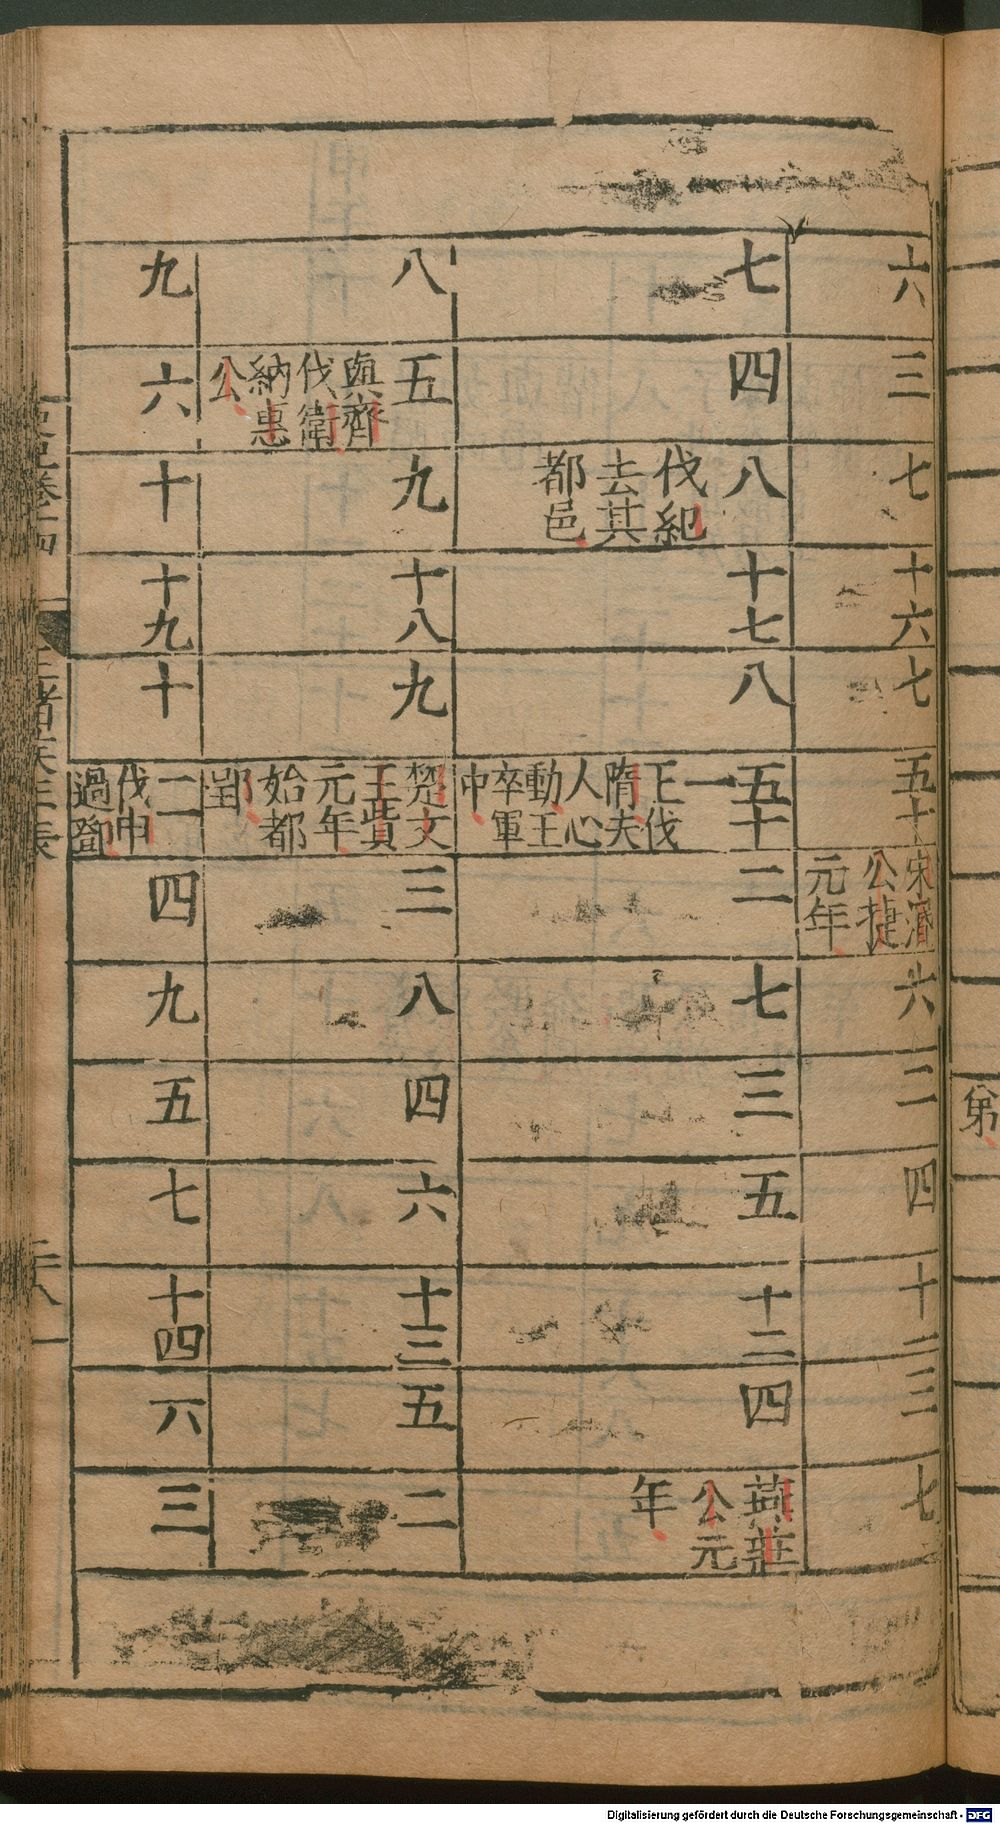 六
三
七
十六
七
五十
宋湣
公捷
元年
六
二
四
十一
三
七
七
四
八
伐紀
去其
都邑
十七
八
五十
一
王伐
隋夫
人心
動王
卒軍
中
二
七
三
五
十二
四
燕莊
公元
年
八
五
與齊
伐衛
納惠
公
九
十八
九
楚文
王貲
元年
始都
郢
三
八
四
六
十三
五
二
九
六
十
十九
十
二
伐申
過鄧
四
九
五
七
十四
六
三
第
Digitalisierung gefördert durch die Deutsche Forschungsgemeinschaft - DFG